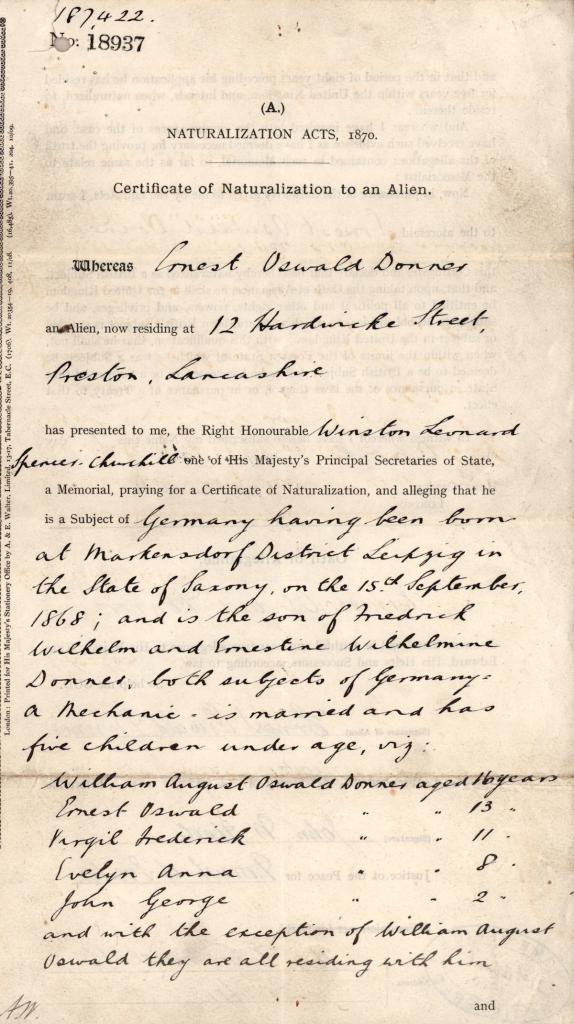 187422.
No: 18937
(A.)
NATURALIZATION ACTS, 1870.
Certificate of Naturalization to an Alien.
Whereas Ernest Oswald Donner
an Alien, now residing at 12 Hardwicke Street,
Preston, Lancashire
has presented to me, the Right Honourable Winston Leonard
Spencer-Churchill one of His Majesty's Principal Secretaries of State,
a Memorial, praying for a Certificate of Naturalization, and alleging that he
is a Subject of Germany having been born
at Markensdorf District Leipzig in
the State of Saxony, on the 15th September,
1868; and is the son of Fredrick
Wilhelm and Ernestine Wilhelmine
Donner, both subjects of Germany-
a Mechanic - is married and has
five children under age, viz:
William August Oswald Donner aged 16 years
Ernest Oswald " " 13 "
Virgil Frederick " " 11 "
Evelyn Anna " " 8 "
John George " " 2 "
and with the exception of William August
Oswald they are all residing with him
and
London: Printed for His Majesty's Stationery Office by A. & E. Walter, Limited, 13-17, Tabernacle Street, E.C.